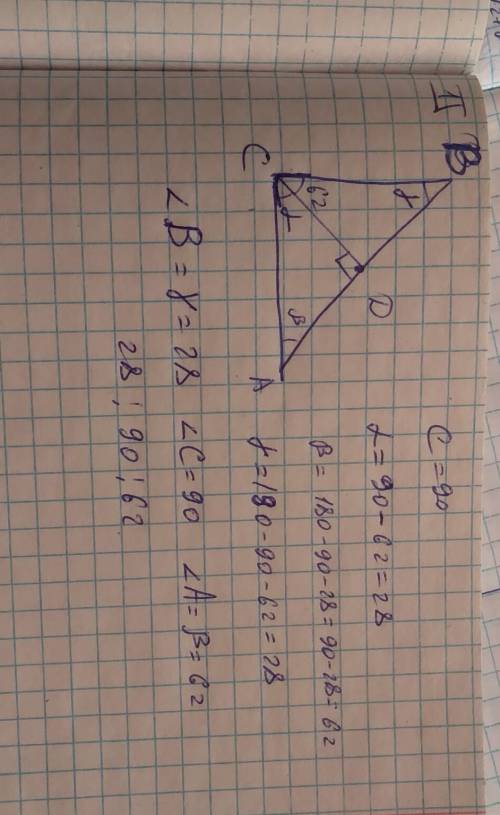 II
B
γ
62
C
α
D
β
A
C = 90
α = 90 - 62 = 28
β = 180 - 90 - 28 = 90 - 28 = 62
γ = 180 - 90 - 62 = 28
∠B = γ = 28 ∠C = 90 ∠A = β = 62
28 ; 90 ; 62